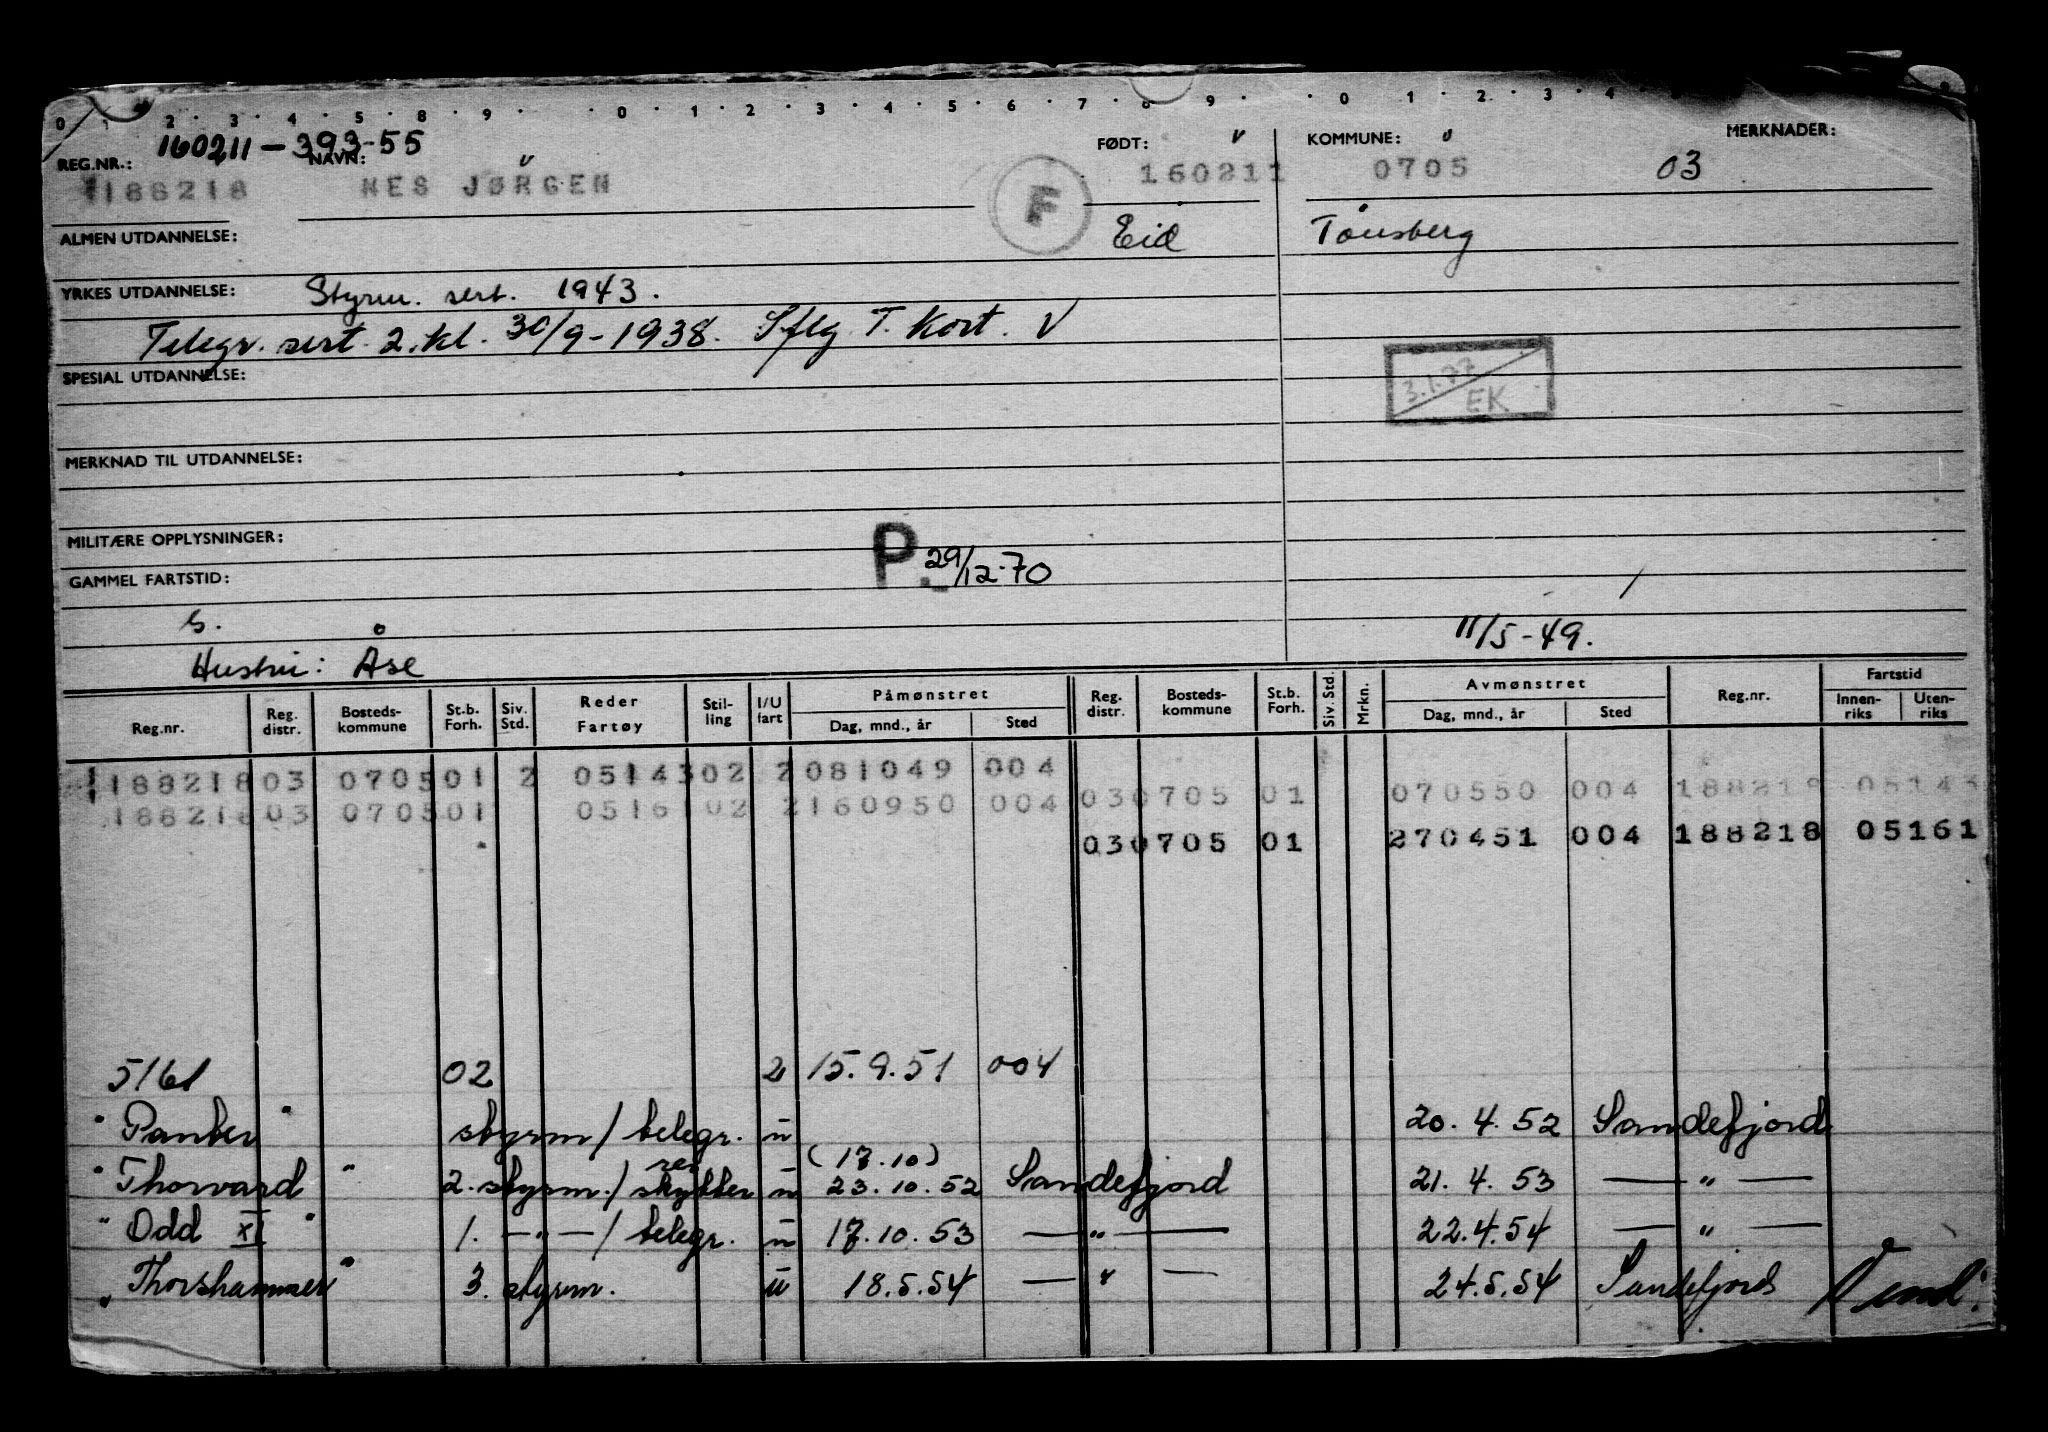 0 1 2 · 3 · 4 · 5 · 8 · 9 · · 0 · 1 · 2 · 3 · 4 · 5 · 6 · 7 · 8 · 9 · · 0 · 1 · 2 · 3 · 4
160211-393-55
REG.NR.: NAVN: FØDT: KOMMUNE: MERKNADER:
188218 NES JØRGEN F 160211 0705 03
ALMEN UTDANNELSE: Eid Tønsberg
YRKES UTDANNELSE: Styrm. sert. 1943.
Telegr. sert. 2. kl. 30/9-1938. Sflg T. Kort. V
SPESIAL UTDANNELSE: 3.1.77 EK
MERKNAD TIL UTDANNELSE:
MILITÆRE OPPLYSNINGER:
GAMMEL FARTSTID: P. 29/12-70
S. 11/5-49.
Hustru: Åse
Reg.nr. Reg. distr. Bosteds-kommune St.b. Forh. Siv. Std. Reder Fartøy Stil-ling I/U fart Påmønstret Dag, mnd., år Sted Reg. distr. Bosteds-kommune St.b. Forh. Siv. Std. Mrkn. Avmønstret Dag, mnd., år Sted Reg.nr. Fartstid Innen-riks Uten-riks
188218 03 0705 01 2 05143 02 2 081049 004
188218 03 0705 01 05161 02 2 160950 004 03 0705 01 070550 004 188218 05143
03 0705 01 270451 004 188218 05161
5161 02 2 15.9.51 004
"Panter" styrm/telegr. u 20.4.52 Sandefjord
(17.10)
"Thorvard" 2. styrm./res skytter u 23.10.52 Sandefjord 21.4.53 — " —
"Odd XI" 1. — " — / telegr. u 17.10.53 — " — 22.4.54 — " —
"Thorshammer" 3. styrm. u 18.5.54 — " — 24.5.54 Sandefjord Vend.